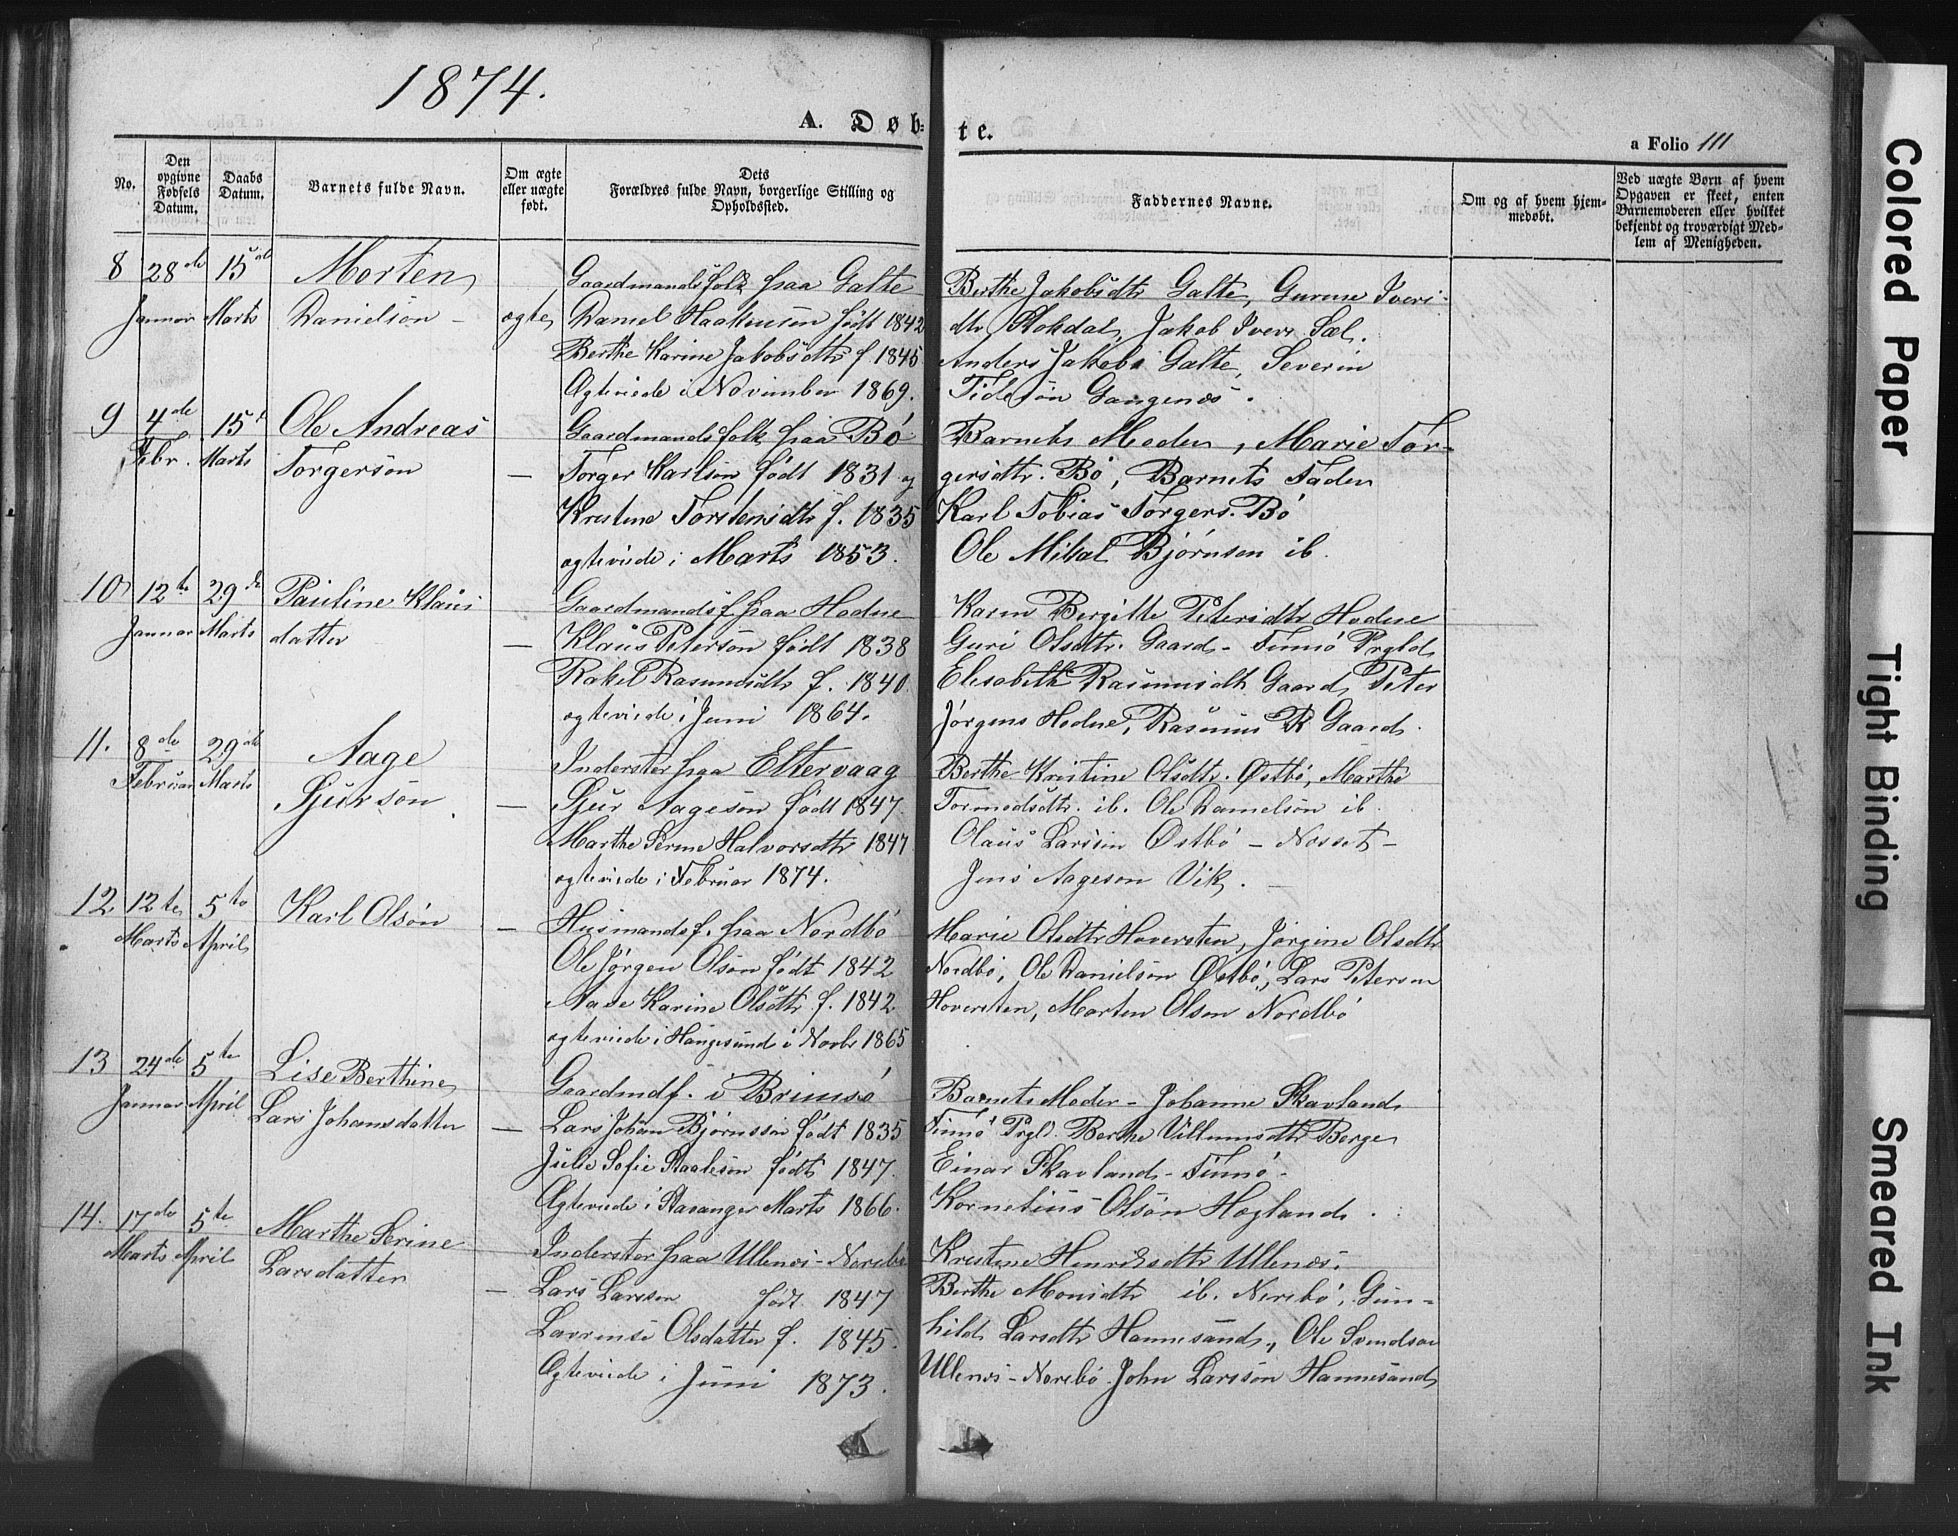 1874.
A. Døb-
te.
a Folio 111
No.
Den opgivne Fødsels Datum.
Daabs Datum.
Barnets fulde Navn.
Om ægte eller uægte født.
Dets Forældres fulde Navn, borgerlige Stilling og Opholdssted.
Faddernes Navne.
Om og af hvem hjemmedøbt.
Ved uægte Børn af hvem Opgaven er skeet, enten Barnemoderen eller hvilket bekjendt og troværdigt Medlem af Menigheden.
8 28de Januar 15de Marts Morten Danielsøn ægte
Gaardmandsfolk fraa Galte
Daniel Haakensen født 1842
Berthe Karine Jakobsdtr f. 1845
Ægteviede i November 1869.
Berthe Jakobsdtr Galte, Gurine Ivers-
dtr Stokdal, Jakob Ivers. Sæl.
Anders Jakobs Galte, Severin
Tidesøn Gangenæs.
9 4de Febr. 15de Marts Ole Andreas Torgersøn —
Gaardmandsfolk fraa Bø
Torger Karlsøn født 1831 og
Kristine Torstensdtr f. 1835
ægteviede i Marts 1853.
Barnets Moder, Marie Tor-
gersdtr. Bø, Barnets Fader
Karl Tobias Torgers. Bø
Ole Mikal Bjørnsen ib.
10 12te Januar 29de Marts Pauline Klaus datter —
Gaardmandsf fraa Hodne
Klaus Petersøn født 1838
Rakel Rasmusdtr f. 1840
ægteviede i Juni 1864.
Karen Bergitte Petersdtr Hodne
Guri Olsdtr. Gaard - Finnø Prgld
Elisabeth Rasmusdtr Gaard, Peter
Jørgens Hodne, Rasmus R Gaard.
11. 8de Februar 29de Marts Aage Sjursøn. —
Inderster fraa Eltervaag
Sjur Aagesøn født 1847.
Marthe Serine Halvorsdtr 1847
ægteviede i Februar 1874.
Berthe Kristine Olsdtr. Østbø, Marthe
Tormodsdtr. ib. Ole Danielsøn ib.
Olaus Larsen Østbø - Næsset -
Jens Aagesøn Vik. —
12 12te Marts 5te April Karl Olsøn —
Husmandsf. fraa Nordbø
Ole Jørgen Olsøn født 1842
Ane Karine Olsdtr f. 1842
ægteviede i Haugesund i Novbr 1865
Marie Olsdtr Hoversten, Jørgine Olsdtr
Nordbø, Ole Danielsøn Østbø, Lars Petersen
Hoversten, Morten Olsen Nordbø
13 24de Januar 5te April Lise Berthine Lars Johansdatter —
Gaardmdf. i Brimsø
Lars Johan Bjørnssøn født 1835
Julie Sofie Staalesøn født 1847.
Ægteviede i Stavanger Marts 1866.
Barnets Moder - Johanne Skavland
Finnø Prgld. Berthe Villumsdtr Berge
Einar Skavland - Finnø -
Kornelius Olsøn Høgland.
14. 17de Marts 5te April Marthe Serine Larsdatter —
Inderster fraa Ullenæs - Norebø
Lars Larsen født 1847
Lavrense Olsdatter f. 1845.
Ægteviede i Juni 1873.
Kristine Henriksdtr Ullenæs.
Berthe Monsdtr ib. Norebø, Gun-
hild Larsdtr Hannesand, Ole Svendsøn
Ullenæs - Norebø. John Larsøn Hannesand
Colored Paper
Tight Binding
Smeared Ink